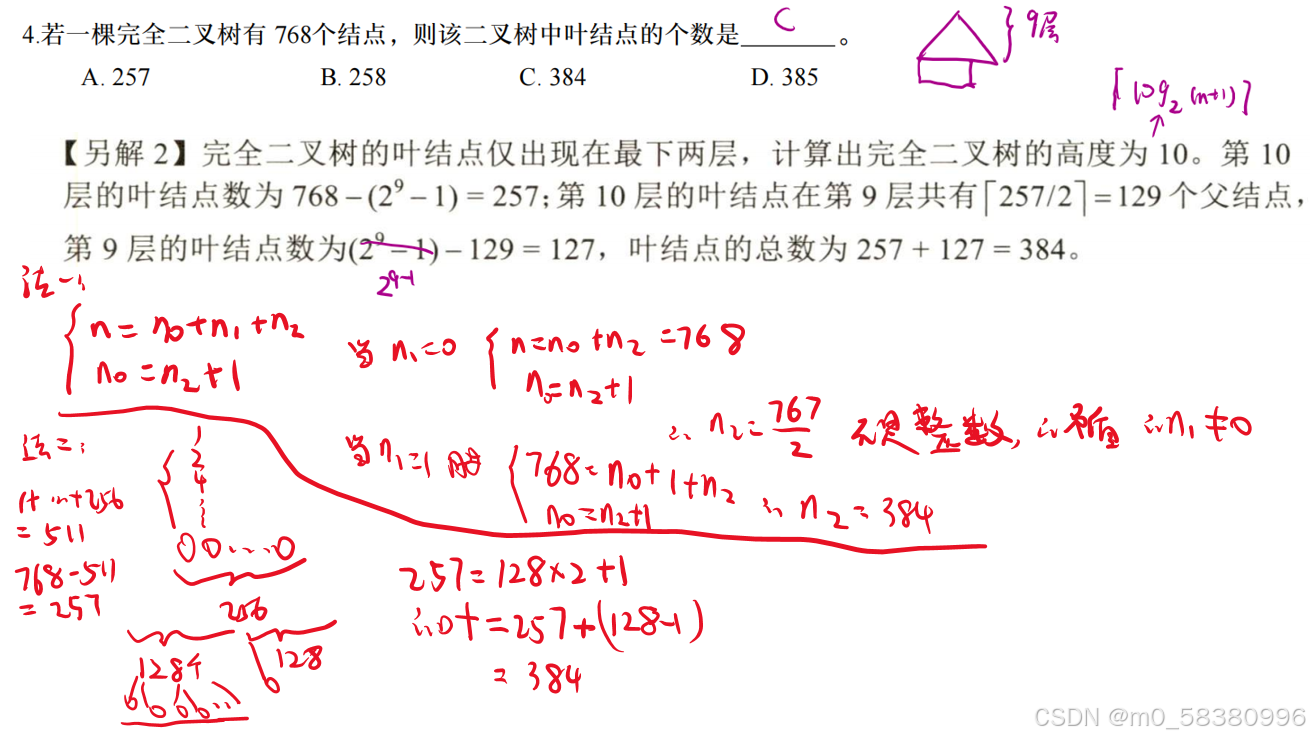 4.若一棵完全二叉树有 768个结点，则该二叉树中叶结点的个数是 C 。
A. 257 B. 258 C. 384 D. 385
}9层
⌈log₂(n+1)⌉
【另解 2】完全二叉树的叶结点仅出现在最下两层，计算出完全二叉树的高度为 10。第 10
层的叶结点数为 768 – (2⁹ – 1) = 257; 第 10 层的叶结点在第 9 层共有⌈257/2⌉=129 个父结点，
第 9 层的叶结点数为(2⁹ – 1) – 129 = 127，叶结点的总数为 257 + 127 = 384。
2⁹⁻¹
法一:
n=n₀+n₁+n₂
n₀=n₂+1
当 n₁=0 { n=n₀+n₂=768
n₀=n₂+1
∴ n₂=767/2 不是整数, ∴ ∴n₁≠0
当n₁=1时 { 768=n₀+1+n₂
n₀=n₂+1 ∴ n₂=384
法二:
1
2
4
⋮
00....0
1+...+256
=511
768-511
=257
256
128个
128
257=128×2+1
∴叶=257+(128-1)
=384
CSDN @m0_58380996